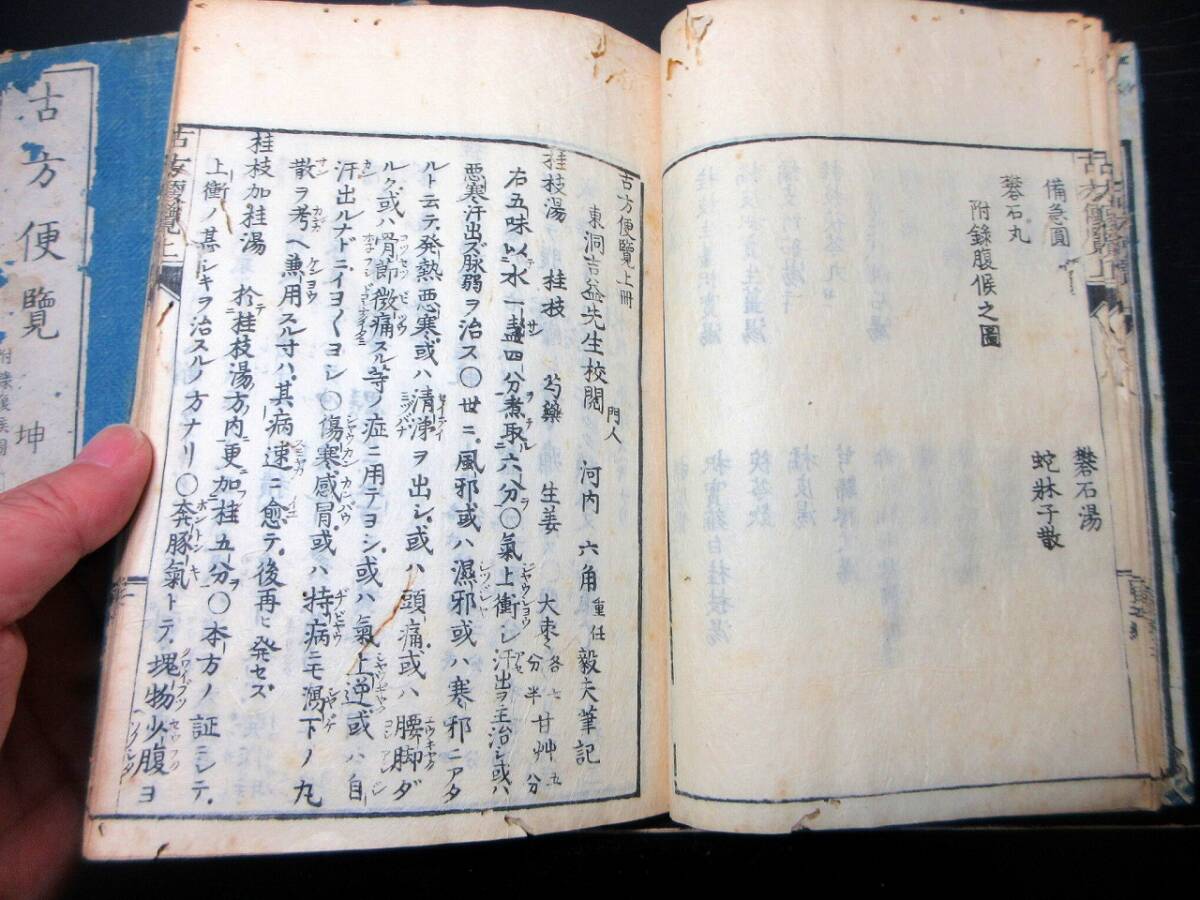 備急圓
礬石湯
礬石丸
蛇牀子散
附錄腹候之圖
古方便覽上
古方便覽上冊
東洞吉益先生校閱 門人 河内 六角重任毅夫筆記
桂枝湯 桂枝 芍藥 生姜 大枣各七分半 甘艸五分
右五味以水一盞四分煮取六分〇氣上衝シ汗出ヲ主治シ或ハ
悪寒汗出ズ脉弱ヲ治ス〇世ニ風邪或ハ濕邪或ハ寒邪ニアタ
ルト云テ発熱悪寒或ハ清涕ヲ出シ或ハ頭痛或ハ腰脚ダ
ルク或ハ骨節微痛スル等ノ症ニ用テヨシ或ハ氣上逆或ハ自
汗出ルナドニイヨ〱ヨシ〇傷寒感冒或ハ持病ニモ瀉下ノ丸
散ヲ考ヘ兼用スル寸ハ其病速ニ愈テ後再ヒ発セズ
桂枝加桂湯 於桂枝湯方内更加桂五分〇本方ノ証ニシテ
上衝ノ甚シキヲ治スルノ方ナリ〇奔豚氣トテ塊物少腹ヨ
古方便覽上
古方便覽 坤